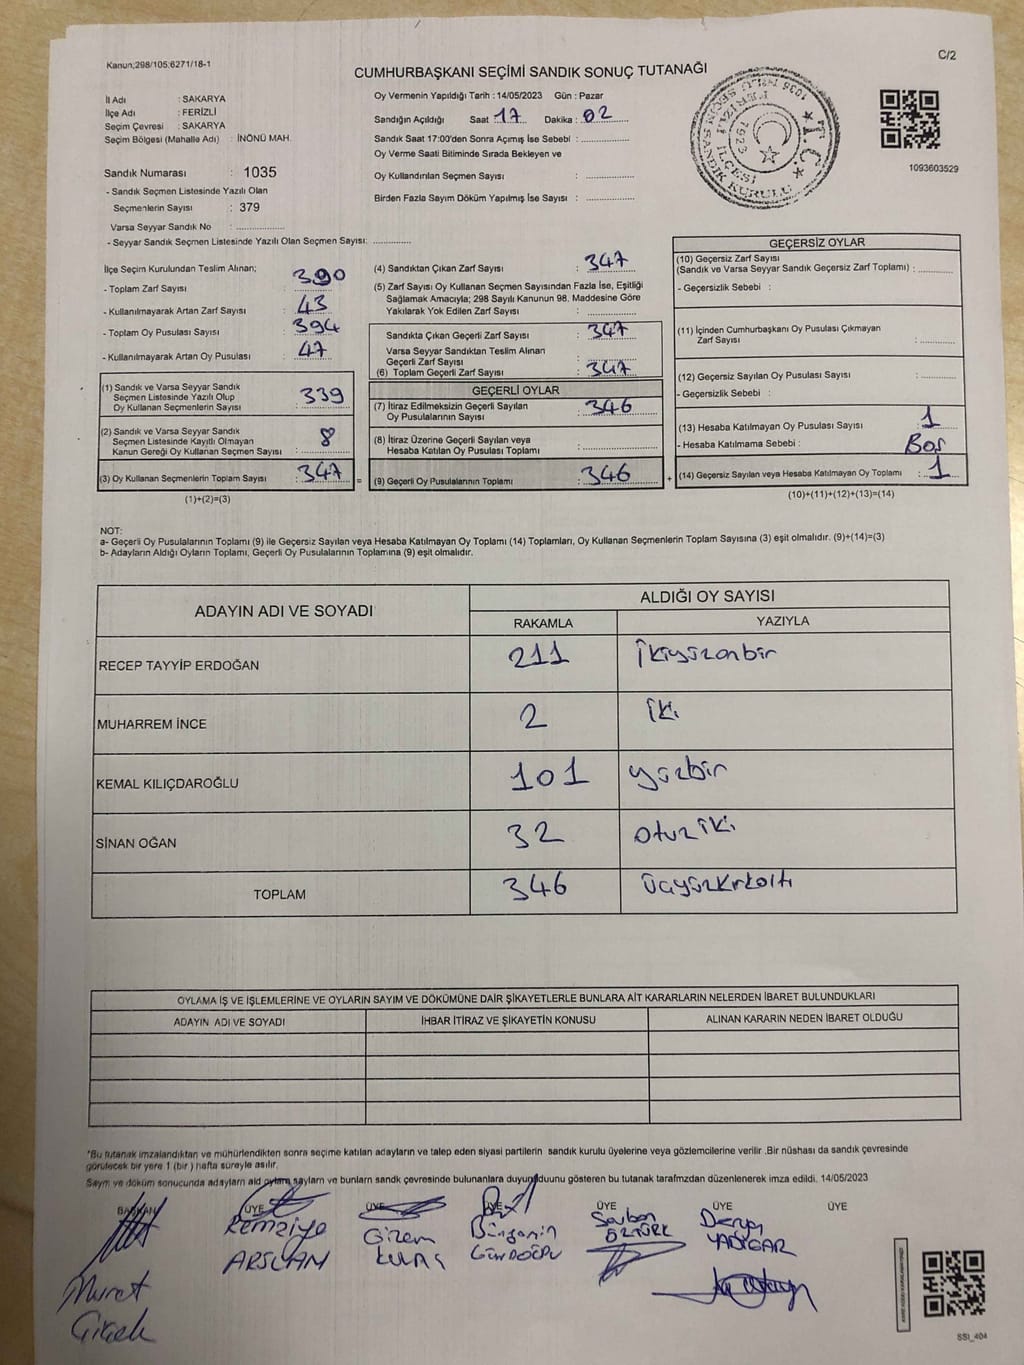 Kanun;298/105;6271/18-1
C/2
CUMHURBAŞKANI SEÇİMİ SANDIK SONUÇ TUTANAĞI
İl Adı : SAKARYA
İlçe Adı : FERİZLİ
Seçim Çevresi : SAKARYA
Seçim Bölgesi (Mahalle Adı) : İNÖNÜ MAH.
Sandık Numarası : 1035
- Sandık Seçmen Listesinde Yazılı Olan
Seçmenlerin Sayısı : 379
Varsa Seyyar Sandık No : ................
- Seyyar Sandık Seçmen Listesinde Yazılı Olan Seçmen Sayısı: ............
Oy Vermenin Yapıldığı Tarih : 14/05/2023 Gün : Pazar
Sandığın Açıldığı Saat 17 Dakika : 02
Sandık Saat 17:00'den Sonra Açımış İse Sebebi : ................
Oy Verme Saati Bitiminde Sırada Bekleyen ve
Oy Kullandırılan Seçmen Sayısı : ................
Birden Fazla Sayım Döküm Yapılmış İse Sayısı : ................
T.C.
FERİZLİ İLÇESİ
SANDIK KURULU
1923
1093603529
İlçe Seçim Kurulundan Teslim Alınan;
- Toplam Zarf Sayısı : 390
- Kullanılmayarak Artan Zarf Sayısı : 43
- Toplam Oy Pusulası Sayısı : 394
- Kullanılmayarak Artan Oy Pusulası : 47
(1) Sandık ve Varsa Seyyar Sandık
Seçmen Listesinde Yazılı Olup
Oy Kullanan Seçmenlerin Sayısı : 339
(2) Sandık ve Varsa Seyyar Sandık
Seçmen Listesinde Kayıtlı Olmayan
Kanun Gereği Oy Kullanan Seçmen Sayısı : 8
(3) Oy Kullanan Seçmenlerin Toplam Sayısı : 347
(1)+(2)=(3)
(4) Sandıktan Çıkan Zarf Sayısı : 347
(5) Zarf Sayısı Oy Kullanan Seçmen Sayısından Fazla İse, Eşitliği
Sağlamak Amacıyla; 298 Sayılı Kanunun 98. Maddesine Göre
Yakılarak Yok Edilen Zarf Sayısı : ................
Sandıkta Çıkan Geçerli Zarf Sayısı : 347
Varsa Seyyar Sandıktan Teslim Alınan
Geçerli Zarf Sayısı : ................
(6) Toplam Geçerli Zarf Sayısı : 347
GEÇERLİ OYLAR
(7) İtiraz Edilmeksizin Geçerli Sayılan
Oy Pusulalarının Sayısı : 346
(8) İtiraz Üzerine Geçerli Sayılan veya
Hesaba Katılan Oy Pusulası Toplamı : ................
= (9) Geçerli Oy Pusulalarının Toplamı : 346 +
GEÇERSİZ OYLAR
(10) Geçersiz Zarf Sayısı
(Sandık ve Varsa Seyyar Sandık Geçersiz Zarf Toplamı) : ............
- Geçersizlik Sebebi :
(11) İçinden Cumhurbaşkanı Oy Pusulası Çıkmayan
Zarf Sayısı : ............
(12) Geçersiz Sayılan Oy Pusulası Sayısı : ............
- Geçersizlik Sebebi :
(13) Hesaba Katılmayan Oy Pusulası Sayısı : 1
- Hesaba Katılmama Sebebi : Boş
(14) Geçersiz Sayılan veya Hesaba Katılmayan Oy Toplamı : 1
(10)+(11)+(12)+(13)=(14)
NOT:
a- Geçerli Oy Pusulalarının Toplamı (9) ile Geçersiz Sayılan veya Hesaba Katılmayan Oy Toplamı (14) Toplamları, Oy Kullanan Seçmenlerin Toplam Sayısına (3) eşit olmalıdır. (9)+(14)=(3)
b- Adayların Aldığı Oyların Toplamı, Geçerli Oy Pusulalarının Toplamına (9) eşit olmalıdır.
ADAYIN ADI VE SOYADI
ALDIĞI OY SAYISI
RAKAMLA YAZIYLA
RECEP TAYYİP ERDOĞAN 211 İkiyüzonbir
MUHARREM İNCE 2 iki
KEMAL KILIÇDAROĞLU 101 yüzbir
SİNAN OĞAN 32 otuziki
TOPLAM 346 üçyüzkırkaltı
OYLAMA İŞ VE İŞLEMLERİNE VE OYLARIN SAYIM VE DÖKÜMÜNE DAİR ŞİKAYETLERLE BUNLARA AİT KARARLARIN NELERDEN İBARET BULUNDUKLARI
ADAYIN ADI VE SOYADI İHBAR İTİRAZ VE ŞİKAYETİN KONUSU ALINAN KARARIN NEDEN İBARET OLDUĞU
*Bu tutanak imzalandıktan ve mühürlendikten sonra seçime katılan adayların ve talep eden siyasi partilerin sandık kurulu üyelerine ve gözlemcilerine verilir .Bir nüshası da sandık çevresinde
görülecek bir yere 1 (bir ) hafta süreyle asılır.
Sayım ve döküm sonucunda adayların ald oyların sayların ve bunların sandk çevresinde bulunanlara duyurulduunu gösteren bu tutanak tarafmzdan düzenlenerek imza edildi. 14/05/2023
BAŞKAN ÜYE ÜYE ÜYE ÜYE ÜYE ÜYE
Murat Çiçek
Remziye ARSLAN
Gizem
Bünyamin GÜNDOĞDU
Şaban ÖZTÜRK
Derya YADİGAR
SSI_404